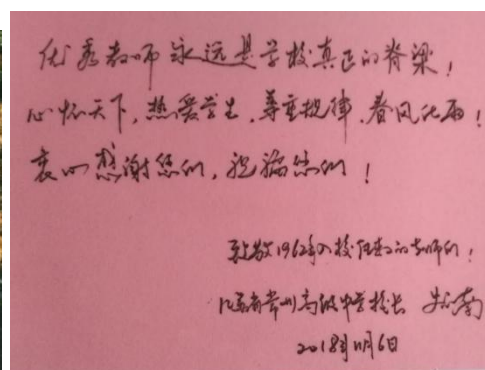 优秀教师永远是学校真正的脊梁！
心怀天下，热爱学生，尊重规律，春风化雨！
衷心感谢您们，祝福您们！
致敬1962年入校任教的老师们！
江苏省常州高级中学校长
2018年11月6日